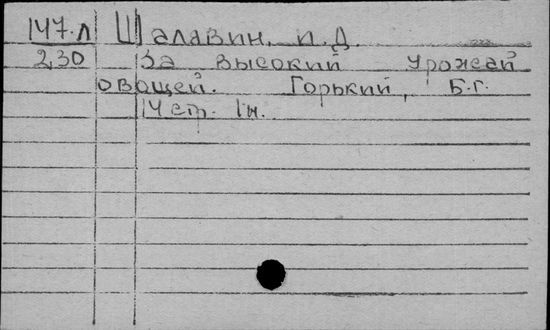 147.л Шалавин, П.Д.
230 За высокий урожай
овощей. Горький, Б.г.
14 стр. 1н.